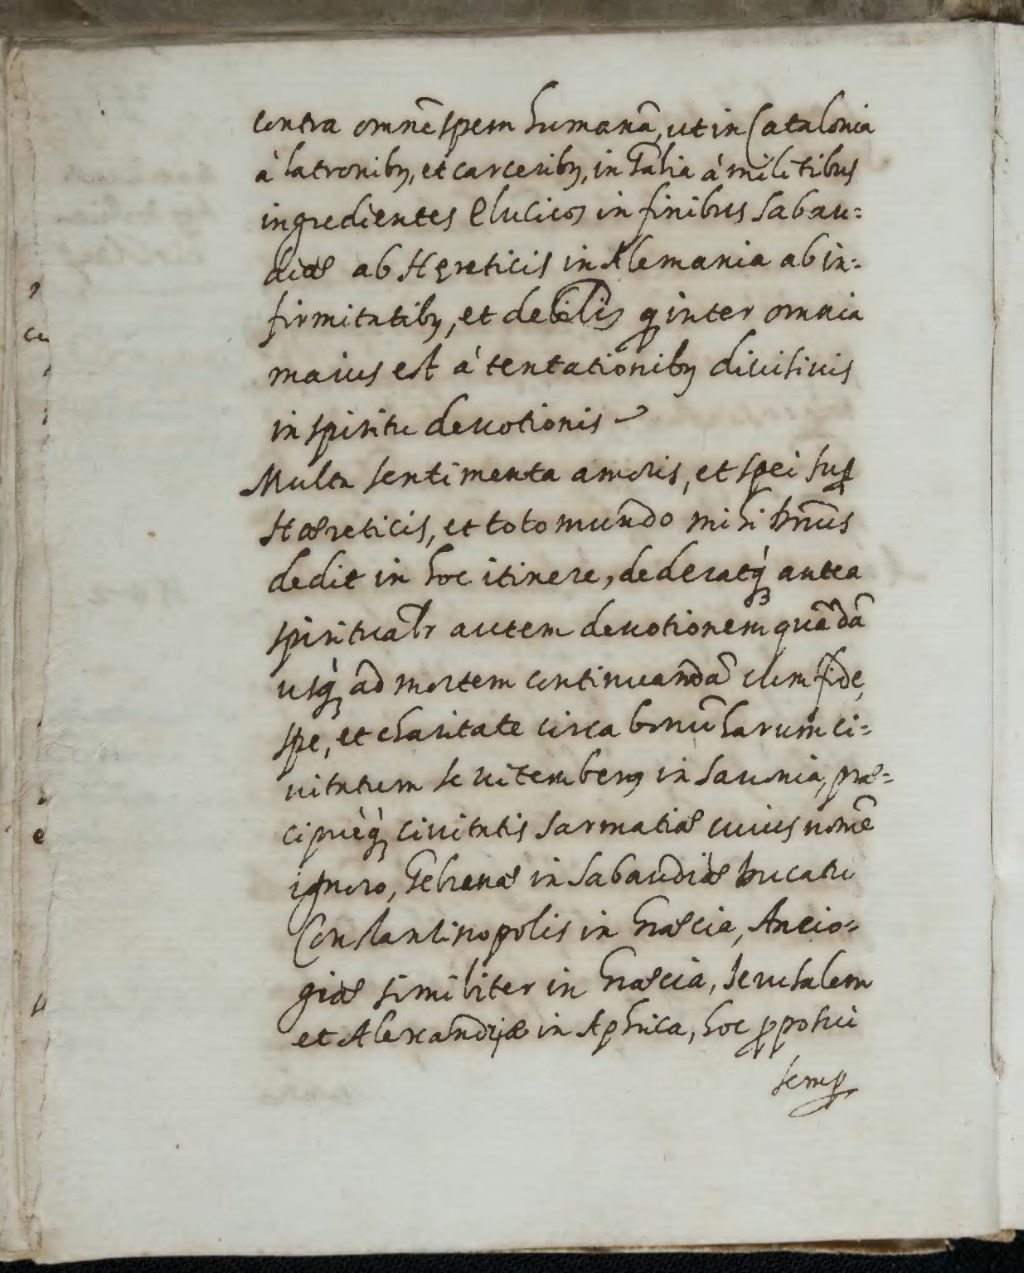 contra omnē spem humanā, ut in Catalonia
à latronibꝫ, et carceribꝫ, in Italia á militibus
ingredientes in finibus Sabau=
diæ ab Hęreticis in Alemania ab in=
firmitatibꝫ, et ꝙ inter omnia
maius est á tentationibꝫ diuisiuis
in spiritu deuotionis
Multa sentimenta amoris, et spei sup̱
Hæreticis, et toto mundo mihi Dñus
dedit in hoc itinere, dederatq́ꝫ antea
spiritualr autem deuotionem quādā
usq́ꝫ ad mortem continuandā cum fide,
spe, et charitate circa bonū harum ci=
uitatum se Vitemberg in Saxonia, præ=
cipuèq́ꝫ ciuitatis Sarmatiæ cuius nomē
ignoro, Gebenæ in Sabaudiæ Ducatu
Constantinopolis in Græcia, Antio=
giæ similiter in Græcia, Ierusalem
et Alexandriæ in Aphrica, hoc ꝓposui
semp̱